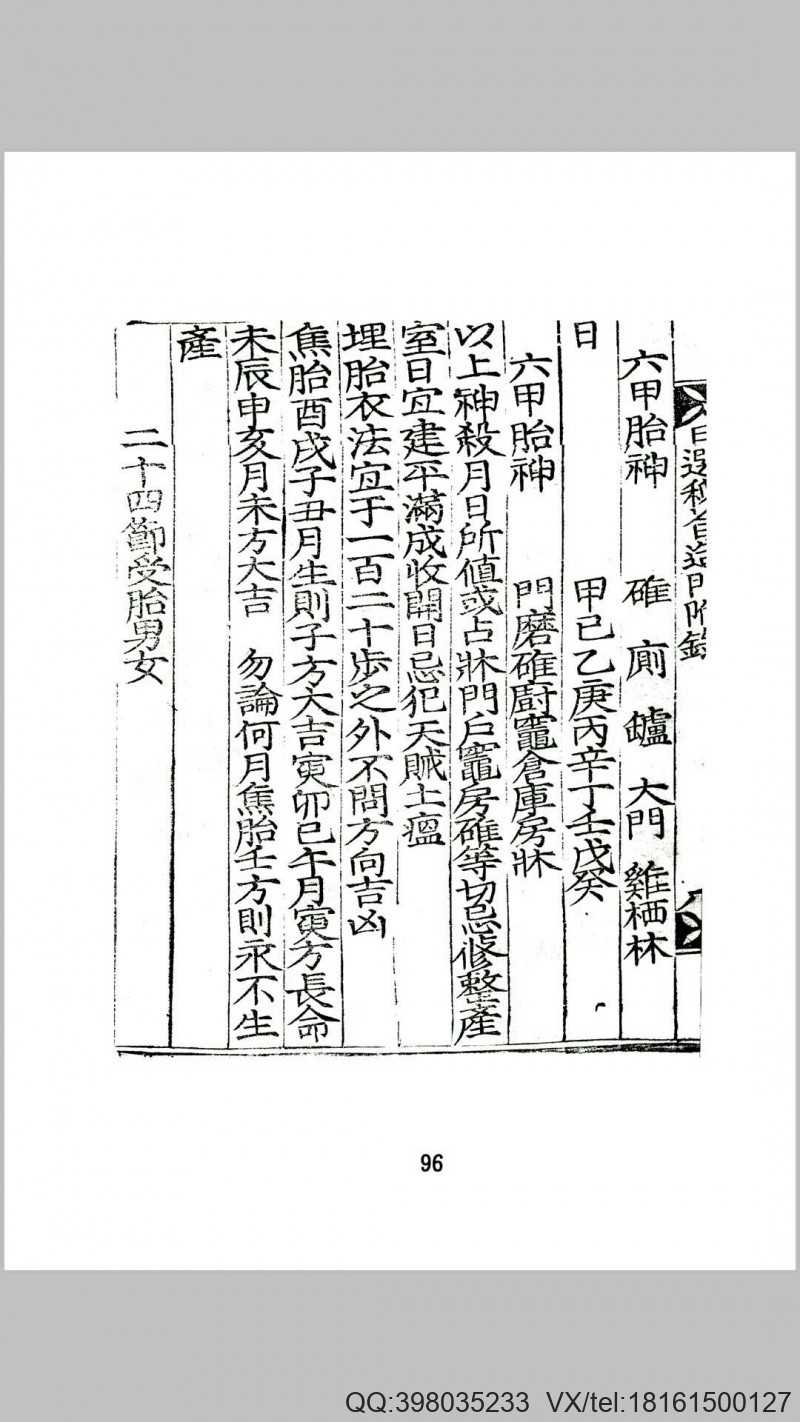 六甲胎神 碓 廁 鑪 大門 雞栖林
日 甲己乙庚丙辛丁壬戊癸
六甲胎神 門磨碓厨竈倉庫房牀
以上神殺月日所值或占牀門戶竈房碓等切忌修整產
室日宜建平滿成收開日忌犯天賊土瘟
埋胎衣法宜于一百二十步之外不問方向吉凶
焦胎酉戌子丑月生則子方大吉寅卯巳午月寅方長命
未辰申亥月未方大吉 勿論何月焦胎壬方則永不生
產
二十四節受胎男女
96
QQ:398035233 VX/tel:18161500127